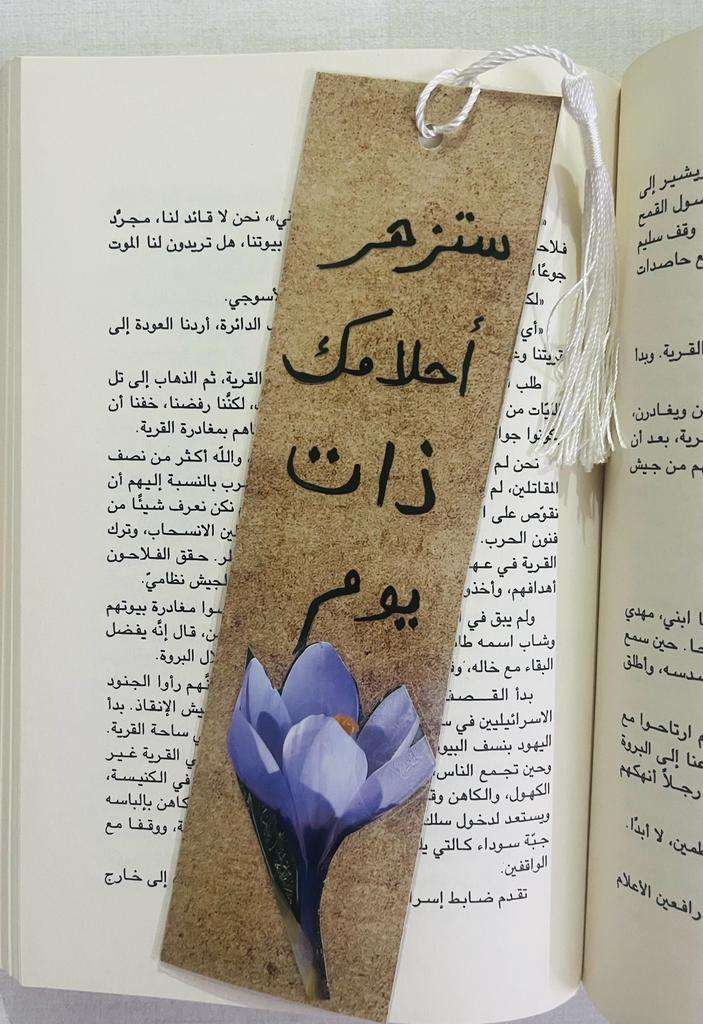 ستزهر
أحلامك
ذات
يوم
ني»، نحن لا قائد لنا، مجرّد
فلاحـ بيوتنا، هل تريدون لنا الموت
جوعًا،
«لكـ لأسوجي.
«أي ، الدائرة، أردنا العودة إلى
قريتنا وغـ
طلب القرية، ثم الذهاب إلى تل
من ، لكنَّنا رفضنا، خفنا أن
جوا هم بمغادرة القرية.
نحن لم والله أكثر من نصف
المقاتلين، لم رب بالنسبة إليهم أن
نقوّص على ا نكن نعرف شيئًا من
فنون الحرب. ين الانسحاب، وترك
القرية في عهـ لر. حقق الفلاحون
أهدافهم، وأخذو لجيش نظاميّ.
ولم يبق في وا مغادرة بيوتهم
وشاب اسمه طا ن، قال إنَّه يفضل
البقاء مع خاله، وف ل البروة.
بدأ القـصف ـهم رأوا الجنود
الاسرائيليين في سـ يش الإنقاذ. بدأ
اليهود بنسف البيو ساحة القرية.
وحين تجمع الناس، ي القرية غـير
الكهول، والكاهن وقـ في الكنيسة،
ويستعد لدخول سلك كاهن بإلباسه
جبّة سوداء كالتي يلـ ة، ووقفا مع
الواقفين.
تقدم ضابط إسرا إلى خارج
يشير إلى
سول القمح
وقف سليم
ع حاصدات
القرية. وبدا
ن ويغادرن،
رية، بعد أن
هم من جيش
ا ابني، مهدي
حا. حين سمع
سدسه، وأطلق
م ارتاحوا مع
عنا إلى البروة
رجلاً أنهكهم
طمين، لا أبدًا.
رافعين الاعلام